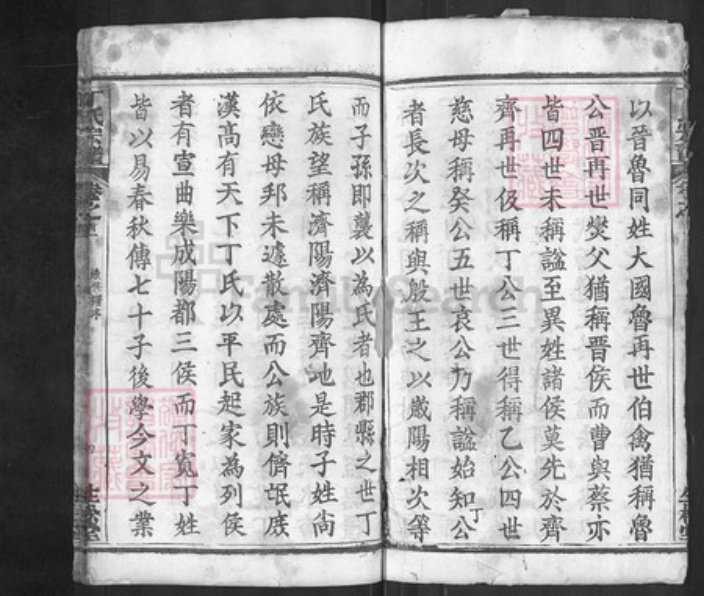 以晉魯同姓大國魯再世伯禽猶稱魯
公晉再世燮父猶稱晉侯而曹與蔡亦
皆四世未稱謚至異姓諸侯莫先於齊
齊再世伋稱丁公三世得稱乙公四世
慈母稱癸公五世哀公乃稱謚始知公
丁
者長次之稱與殷王之以歲陽相次等
而子孫即襲以為氏者也郡縣之世丁
氏族望稱濟陽濟陽齊地是時子姓尚
依戀母邦未遽散處而公族則儕氓庶
漢高有天下丁氏以平民起家為列侯
者有宣曲樂成陽都三侯而丁寬丁姓
皆以易春秋傳七十子後學今文之業
氏宗譜
FamilySearch